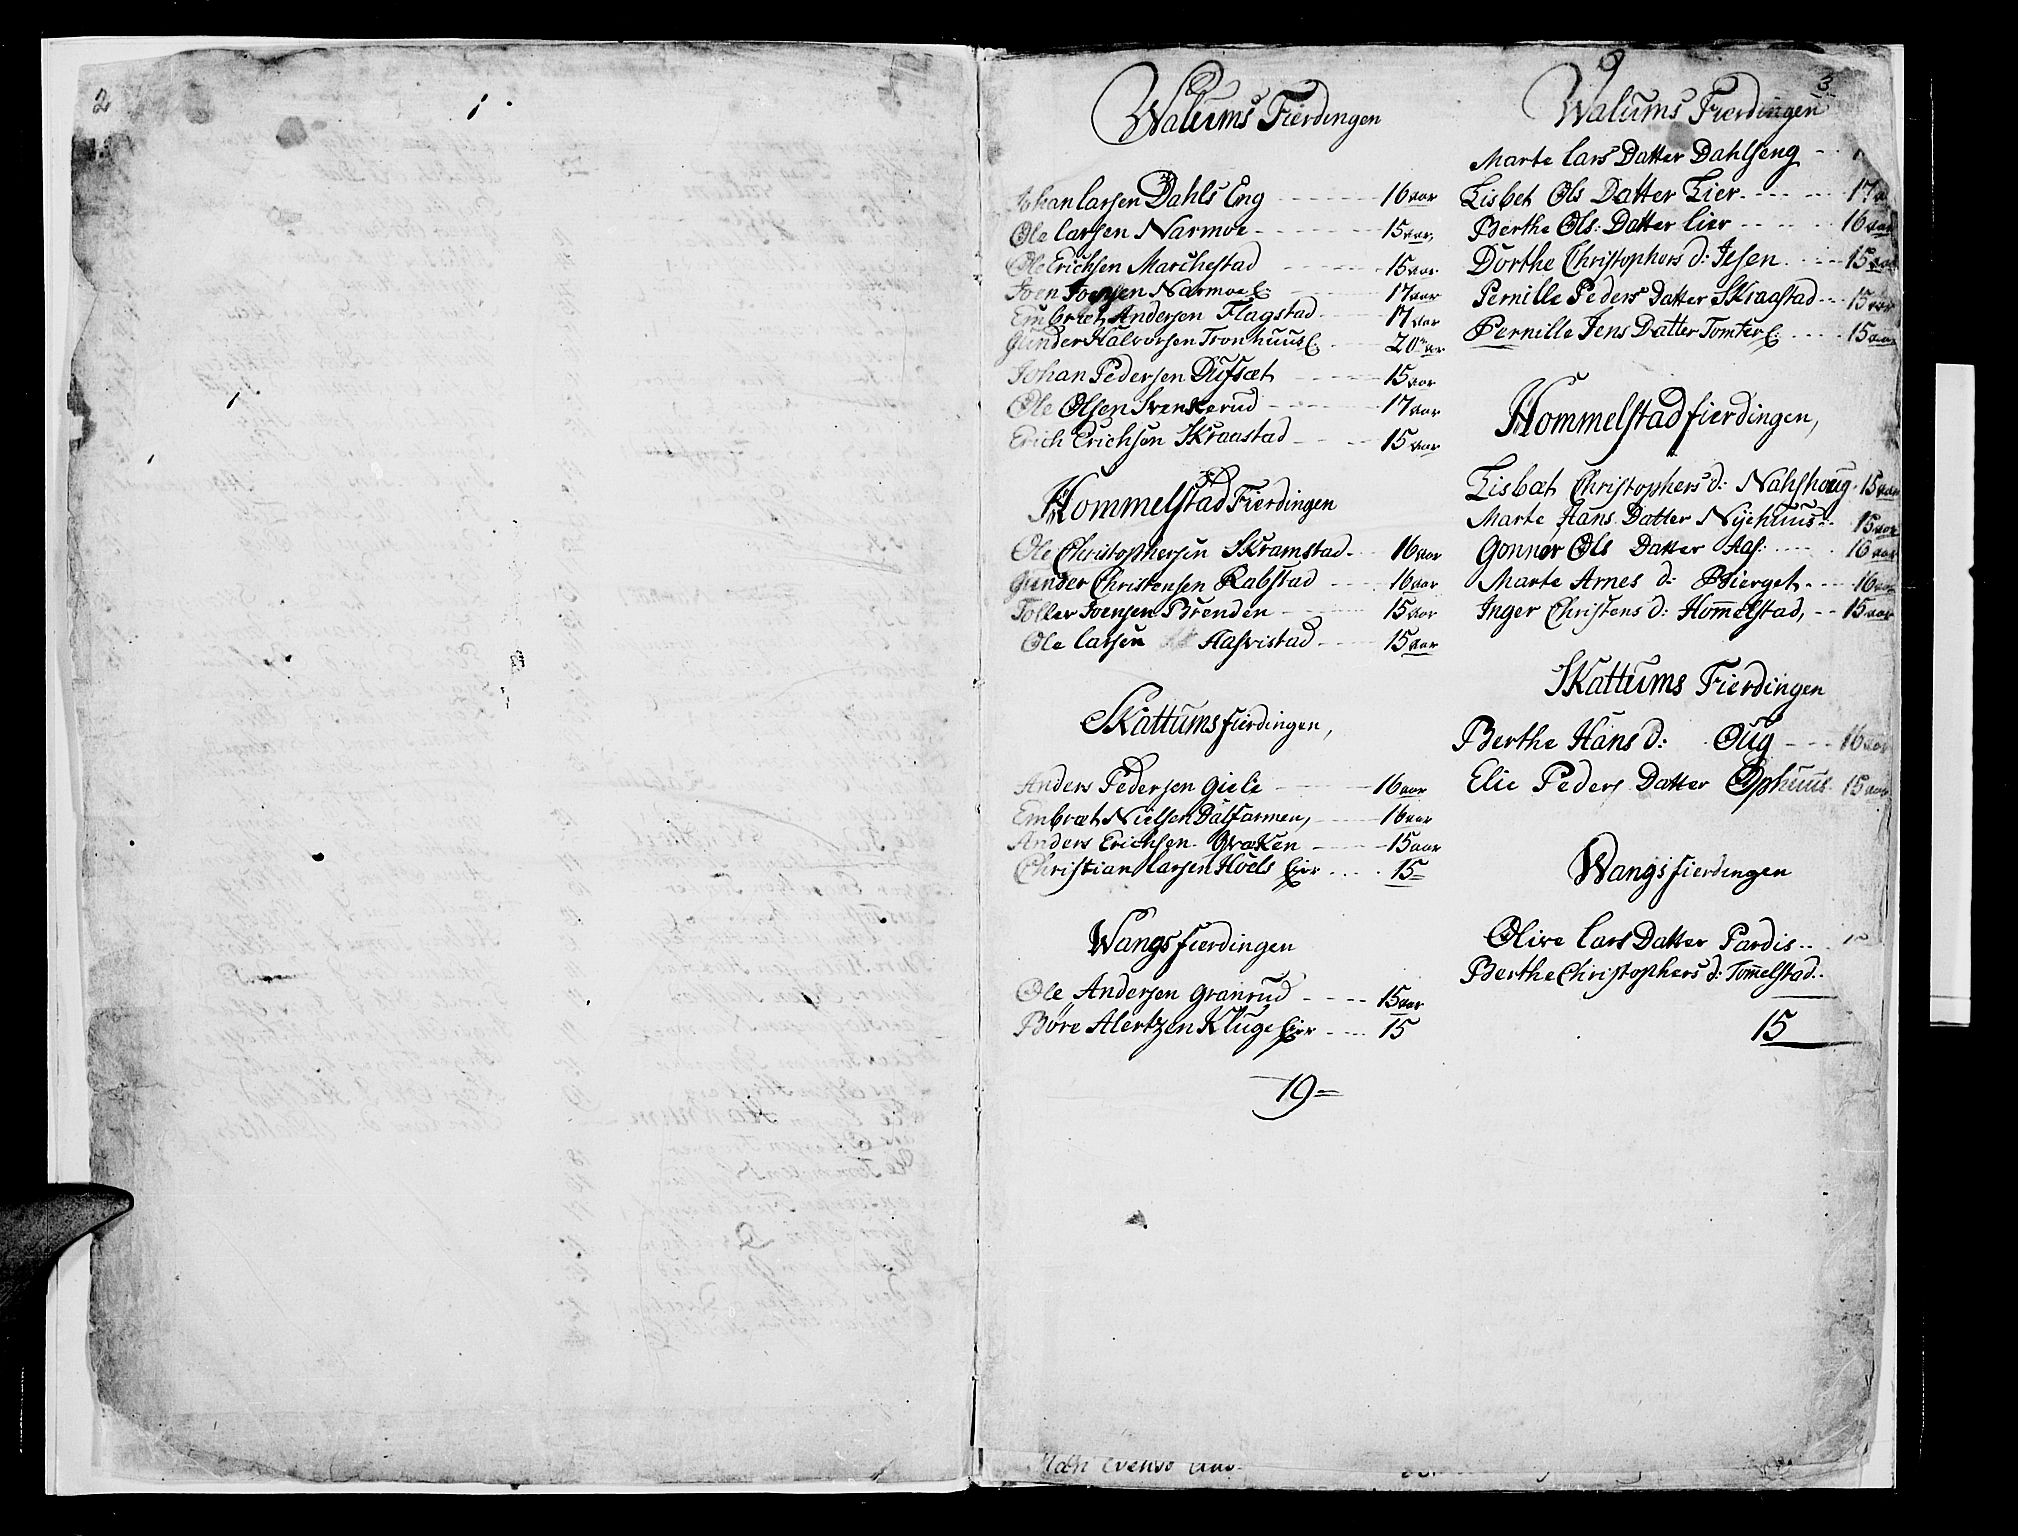 2
3
Walums Fierdingen
Johan Larsen Dahls Eng 16 aar
Ole Larsen Narmoe 15 aar
Ole Erichsen Marchestad 15 aar
Joen Joensen Narmoe E: 17 aar
Embret Andersen Flagstad 17 aar
Gunder Halvorsen Tronhuus E. 20 aar
Johan Pedersen Dufsæt 15 aar
Ole Olsen Svenkerud 17 aar
Erich Erichsen Skraastad 15 aar
Hommelstad Fierdingen
Ole Christophersen Skramstad 16 aar
Gunder Christensen Rabstad 16 aar
Toller Joensen Brenden 15 aar
Ole Larsen Aasvistad 15 aar
Skattums fierdingen,
Anders Pedersen Giele 16 aar
Embræt Nielsen Dalfarmen, 16 aar
Anders Erichsen Qvæken 15 aar
Christian Larsen Hoels Eier 15
Wangs fierdingen
Ole Andersen Granrud 15 aar
Børe Alertzen Kluge Eier 15
19
Walums Fierdingen
Marte Lars Datter Dahlseng
Lisbet Ols Datter Lier 17
Berthe Ols: Datter Lier 16 aar
Dorthe Christophers d: Jesen 15 aar
Pernille Peders Datter Skraastad 15 aar
Pernille Jens Datter Tomter E: 15 aar
Hommelstad fierdingen,
Lisbæt Christophers d: Nahshoug 15 aar
Marte Hans Datter Nyehuus 15 aar
Gonner Ols Datter Aas: 16 aar
Marte Arnes d: Bierget 16 aar
Inger Christens d: Hommelstad, 15 aar
Skattums Fierdingen
Berthe Hans d: Oug 16 aar
Elie Peders Datter Ophuus 15 aar
Wangs fierdingen
Olive Lars Datter Pardis
Berthe Christophers d: Tommelstad
15